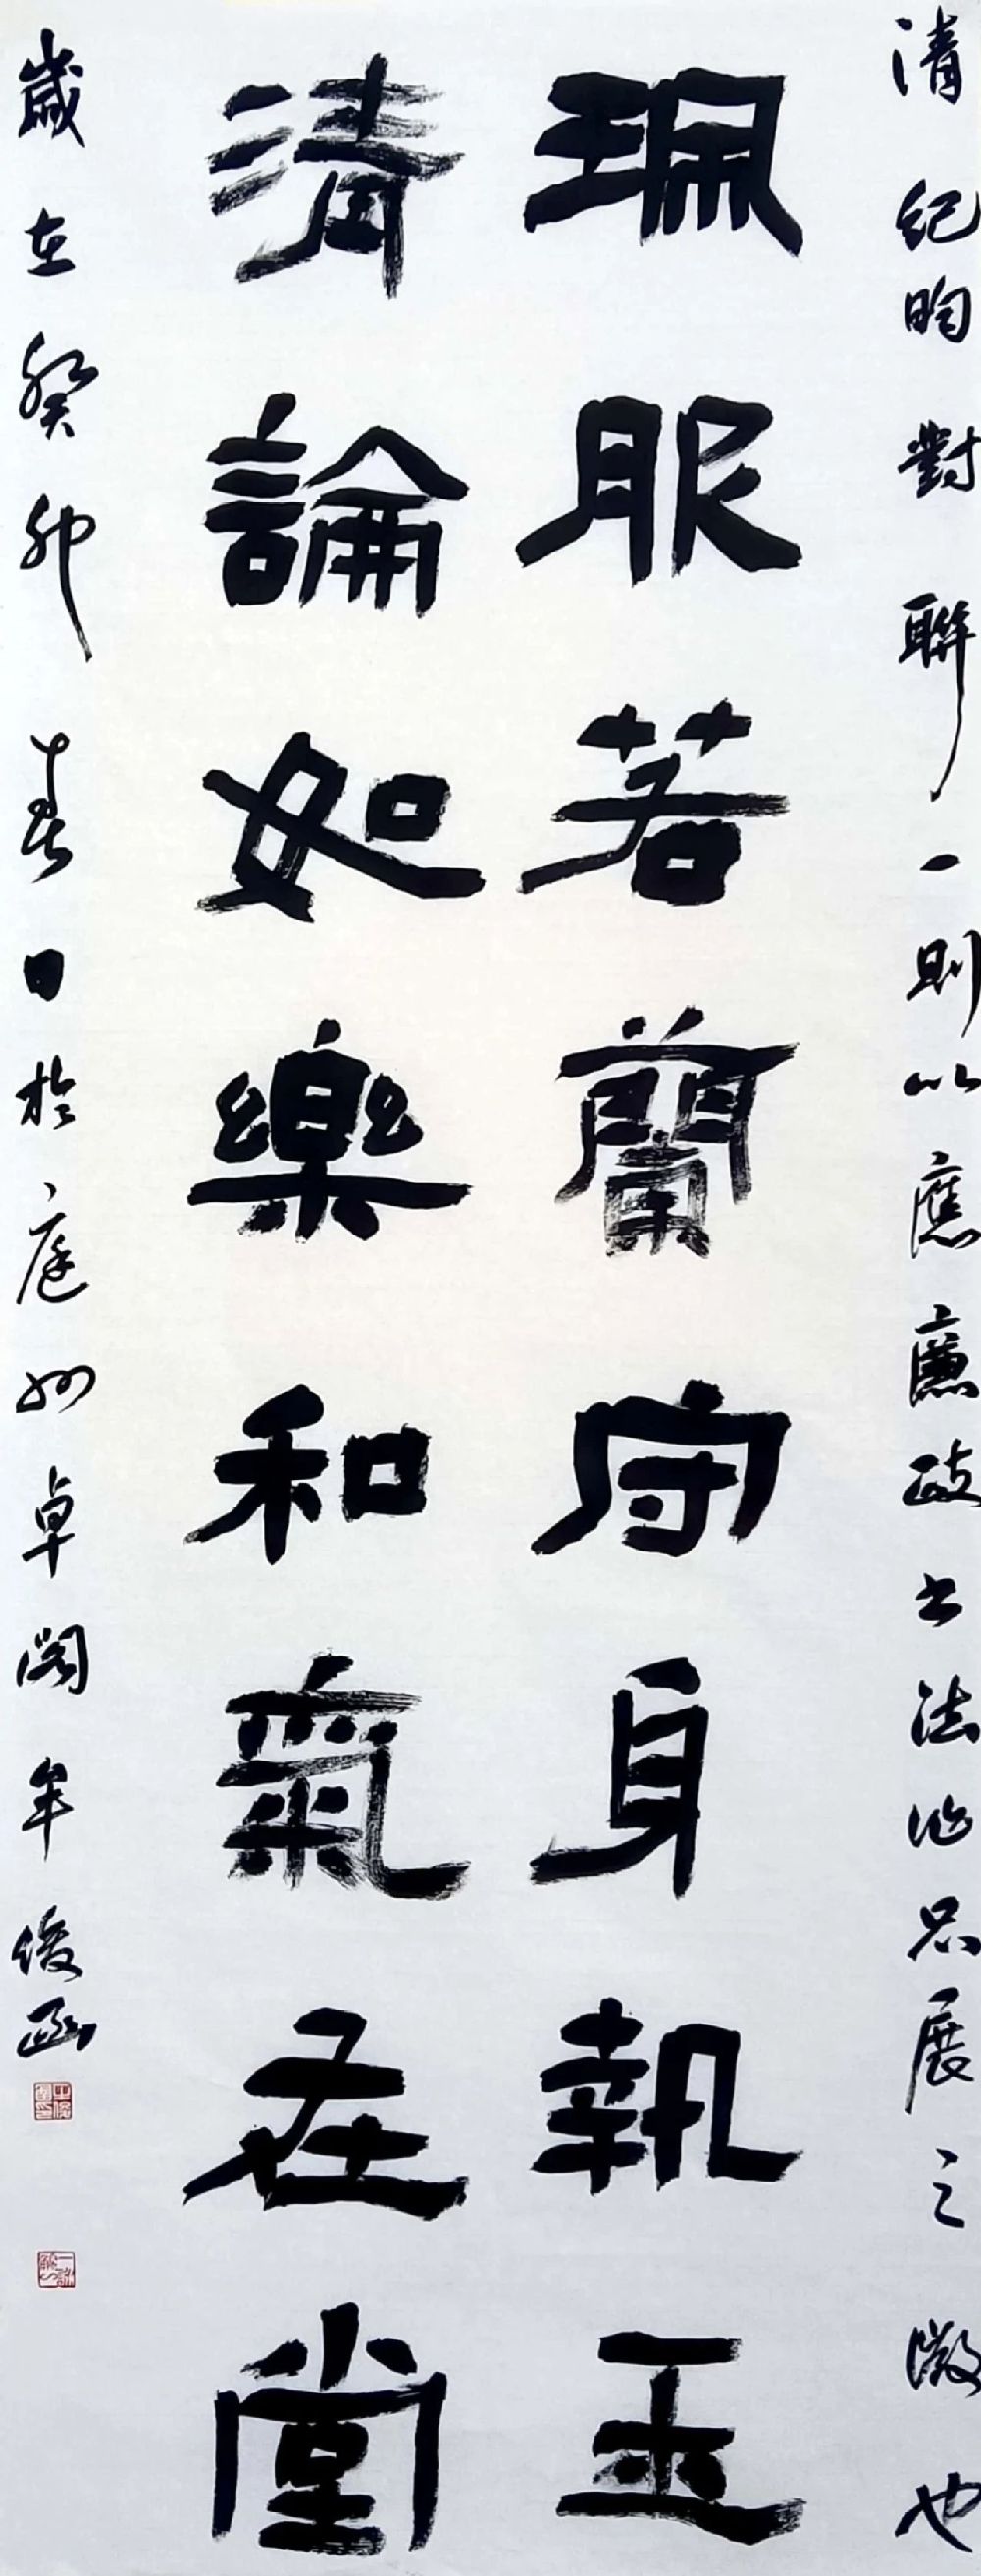 清紀昀對聯一則以應廉政書法作品展之徵也
珮服若蘭守身執玉
清論如樂和氣在堂
歲在癸卯春日於庭州卓閣牟俊函